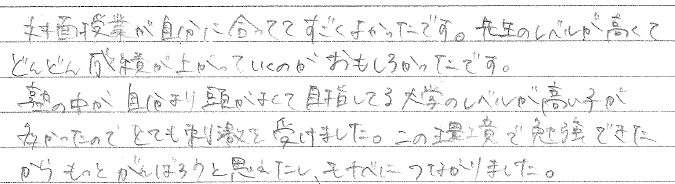 対面授業が自分に合っててすごくよかったです。先生のレベルが高くて
どんどん成績が上がっていくのがおもしろかったです。
塾の中が自分より頭がよくて目指してる大学のレベルが高い子が
多かったのでとても刺激を受けました。この環境で勉強できた
からもっとがんばろうと思えたし、モチベにつながりました。